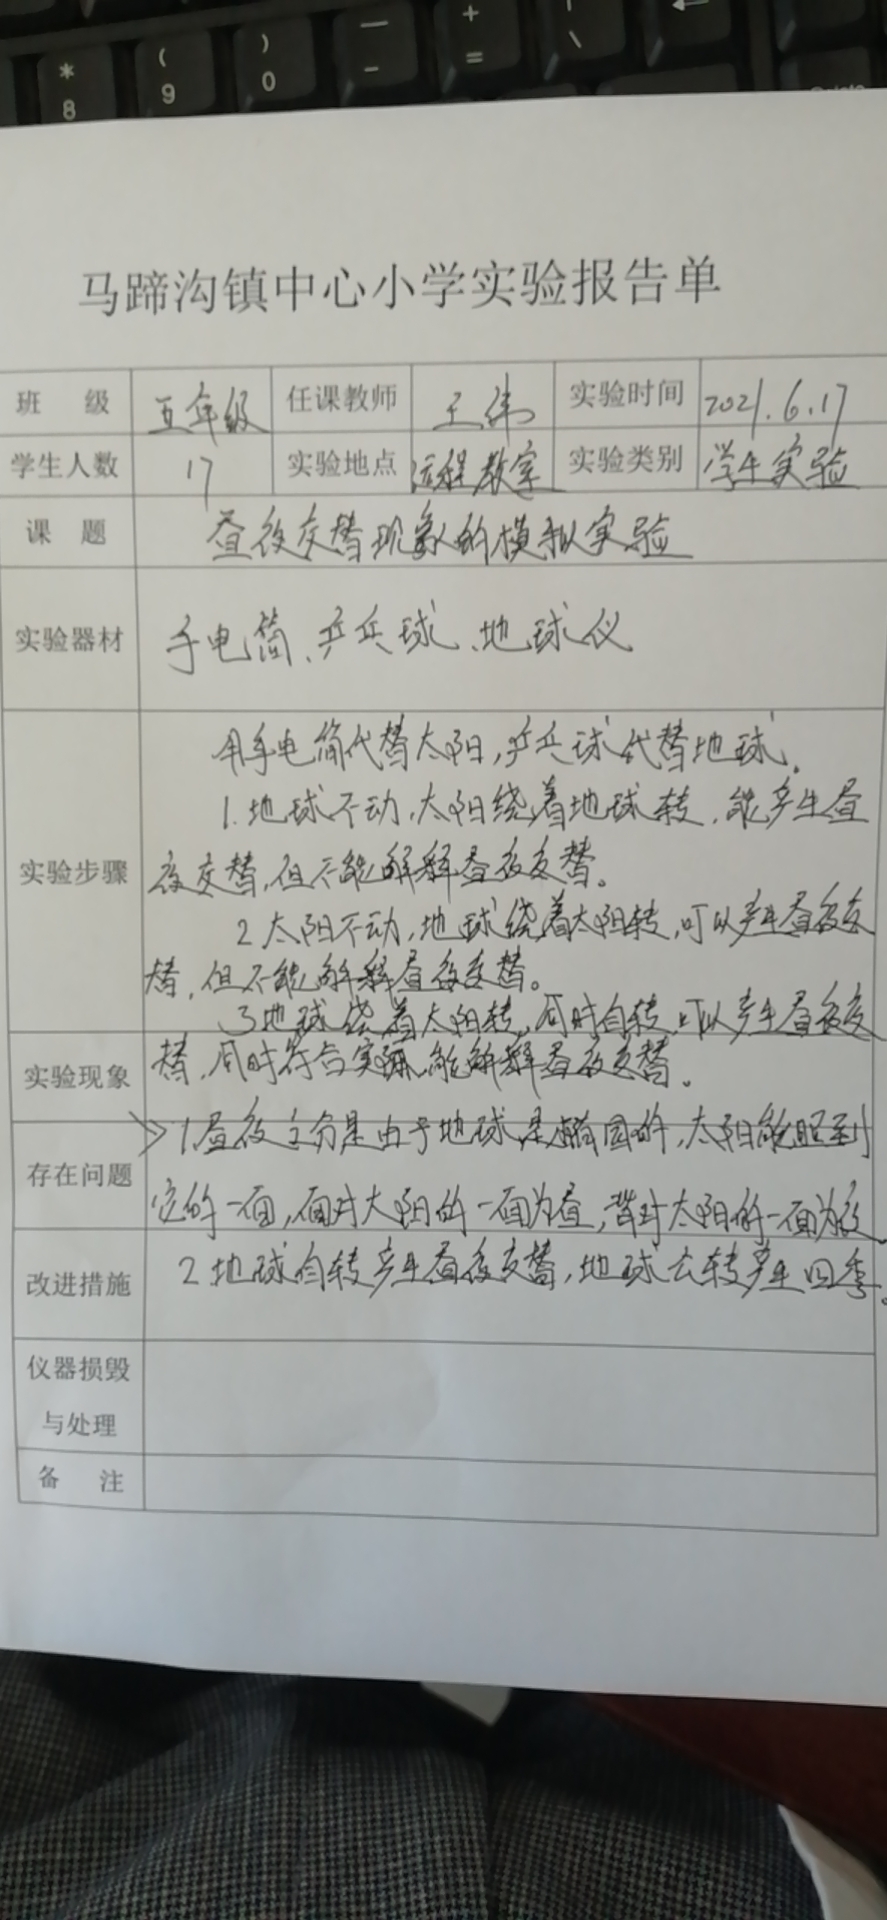 * ( ) — +
8 9 0 - = \
马蹄沟镇中心小学实验报告单
班 级 五年级 任课教师 王伟 实验时间 2021.6.17
学生人数 17 实验地点 远程教室 实验类别 学生实验
课 题 昼夜交替现象的模拟实验
实验器材 手电筒、乒乓球、地球仪
用手电筒代替太阳,乒乓球代替地球。
1.地球不动,太阳绕着地球转,能产生昼
实验步骤 夜交替,但不能解释昼夜交替。
2 太阳不动,地球绕着太阳转,可以产生昼夜交
替,但不能解释昼夜交替。
3地球绕着太阳转,同时自转,可以产生昼夜交
实验现象 替,同时符合实际,能解释昼夜交替。
1.昼夜之分是由于地球是椭圆的,太阳能照到
存在问题 它的一面,面对太阳的一面为昼,背对太阳的一面为夜
改进措施 2 地球自转产生昼夜交替,地球公转产生四季。
仪器损毁
与处理
备 注